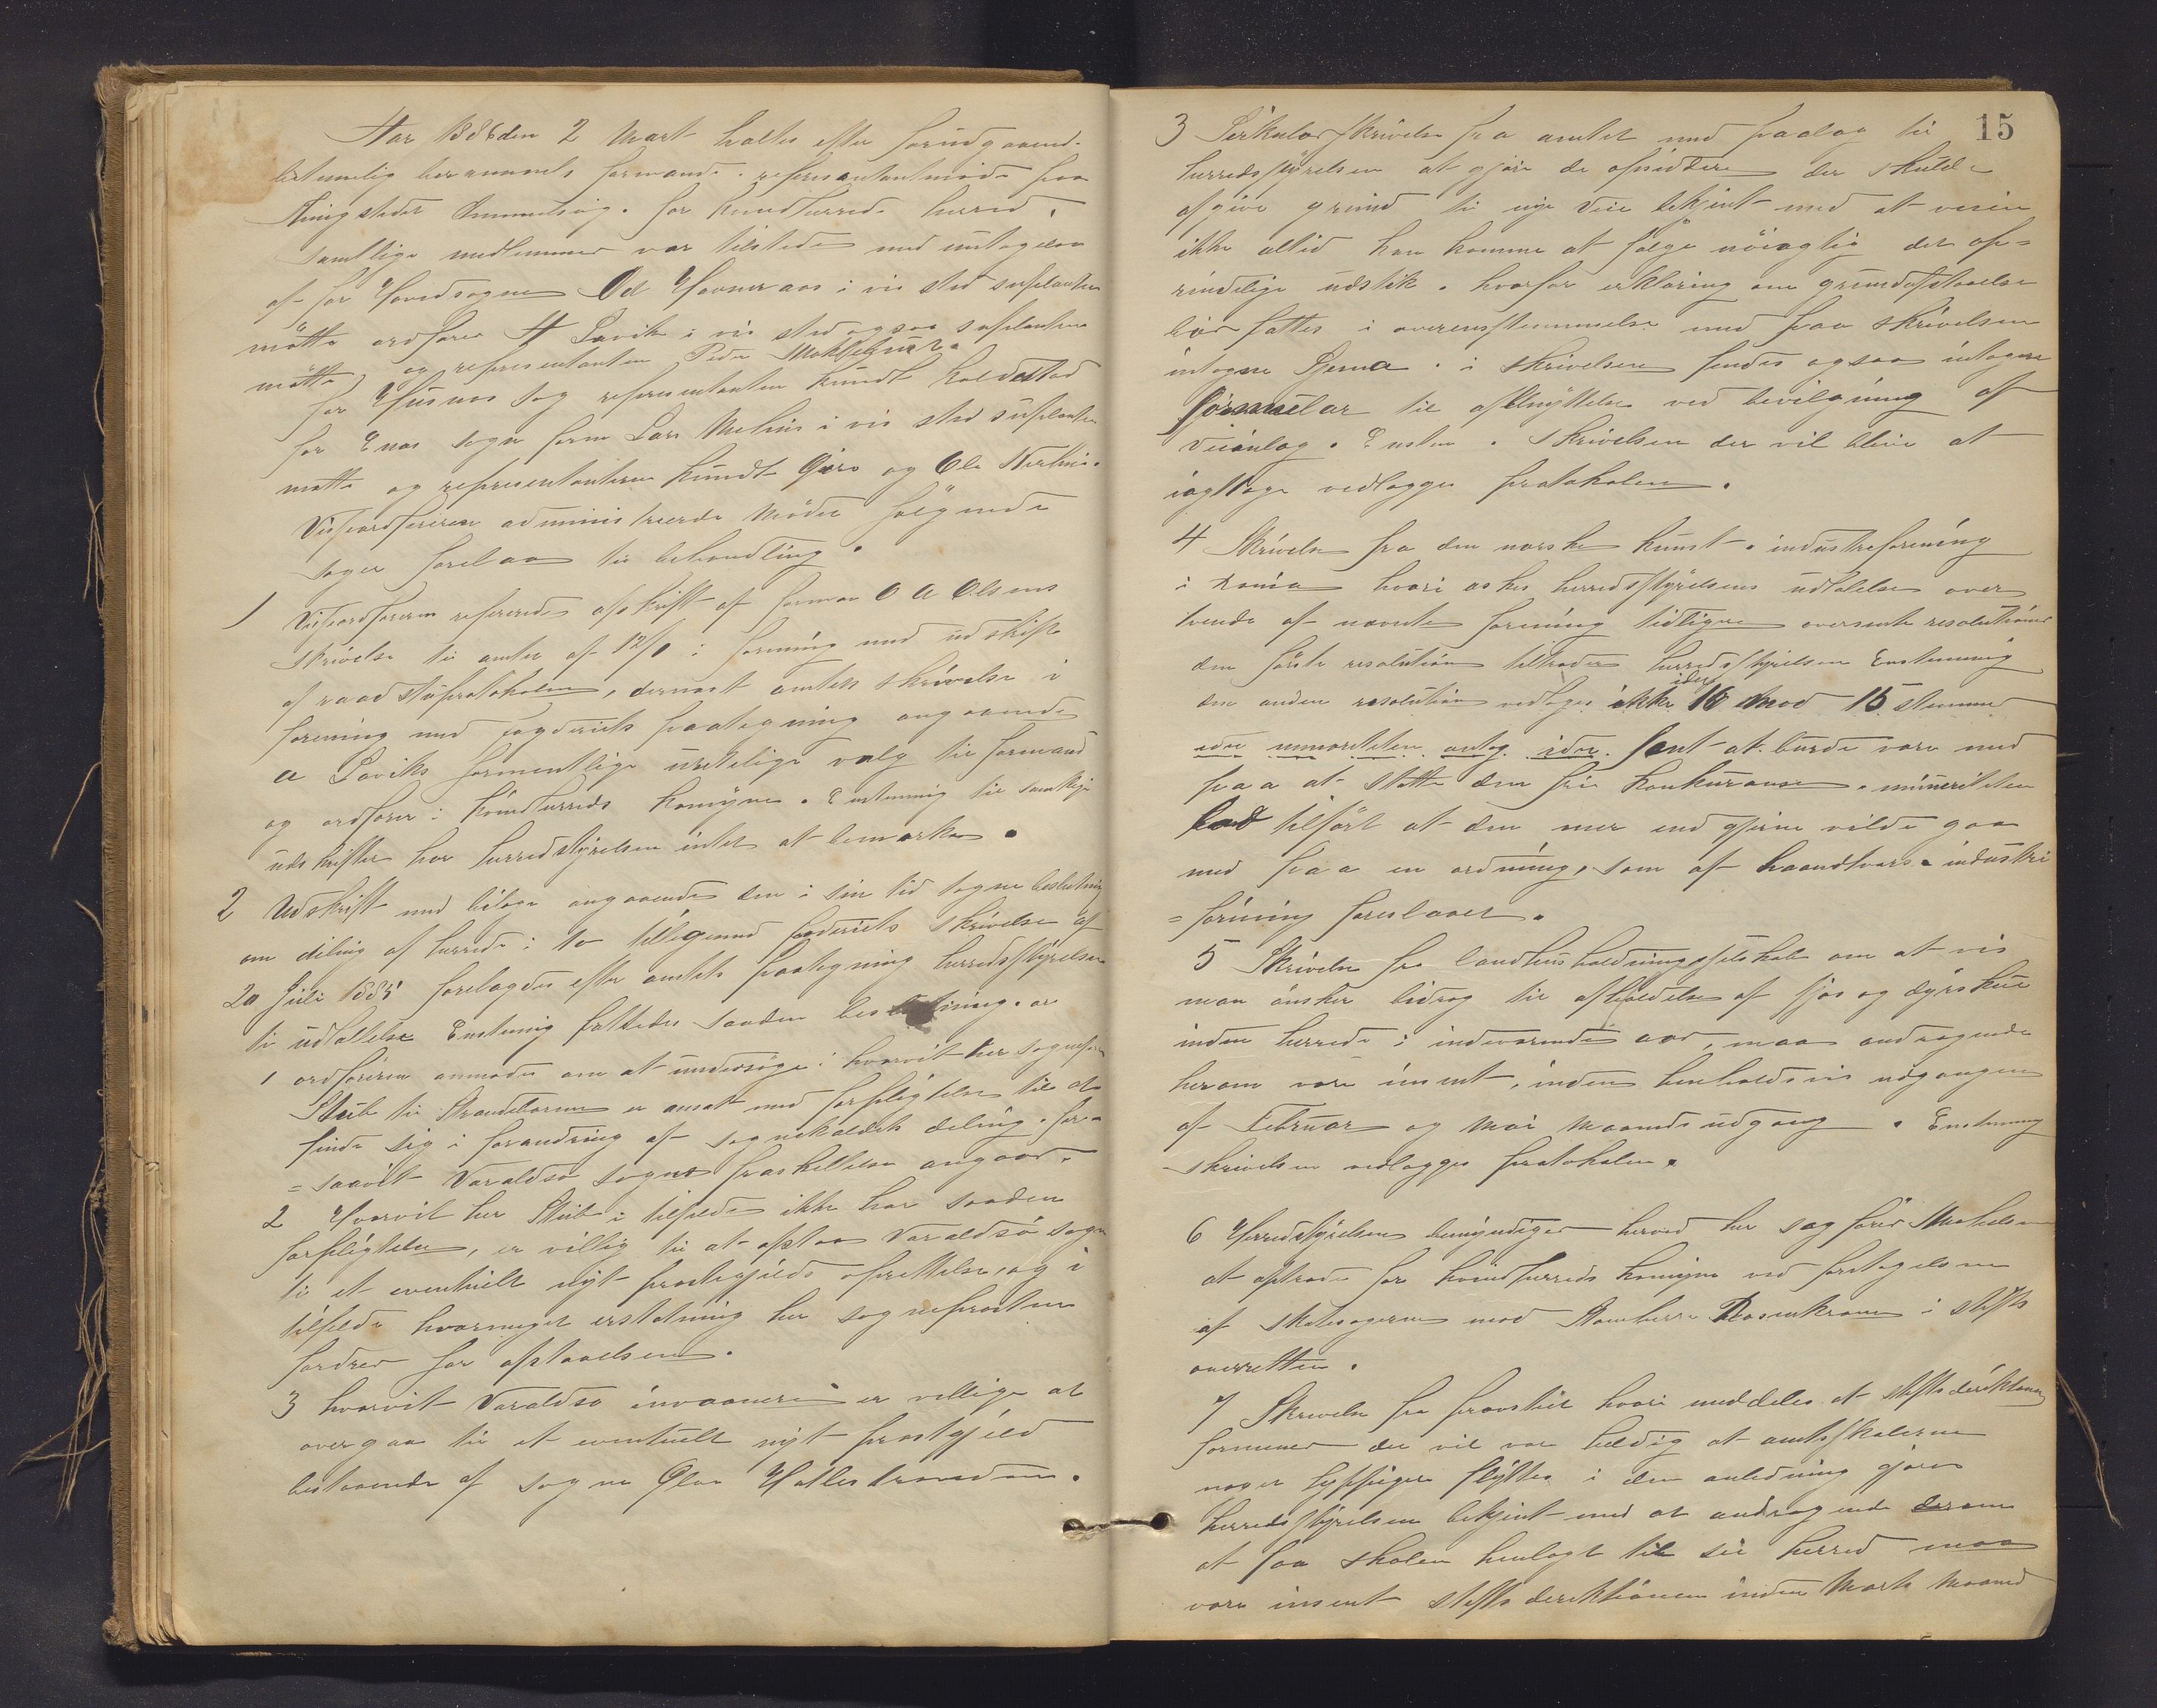 Aar 1886 den 2 Mart holtes efter forudgaaend-
betimelig berammets formands. representantmøde paa
Tingstedet Ømmelvig. for kvindherreds herred.
samtlige medlemmer var tilstede med untagelse
af for Hovedsognen Od Hovneraas i vis sted suplanten
mötte ordförer A Lavik i vis sted ogsaa suplanten
mötte, og representanten Peder
for Husnes Sog representanten Knudt Holdestad
for Enes sogn form Lars Mehus i vis sted suplanten
mötte og representanterne Knudt Gjero og Ole Nerhus.
Viseordföreren administrerde Mödet fölgende
sager forelaa til behandling.
1 Viseordföreren refererede afskrift af forman O A Olsens
Skrivelse til amtet af 12/1 i forening med udskift
af raadstuprotokolen, dernest amtets skrivelse i
forening med fogderiets paategning angaaende
A Laviks formentlige uretelige valg til formand
og ordförer i kvindherreds komune. Enstemmig til samtlige
udskrifter har herredstyrelsen intet at bemærke.
2 Udskrift med bilage angaaende den i sin tid tagne beslutning
om deling af herredet i to tilligemed fogderiets skrivelse af
20 Juli 1885 forelagdes efter amtets paategning herredsstyrelsen
til udtallelse Enstemig fattedes saadan beslutning. at
1 ordföreren anmodes om at undersöge i hvorvit her sogneprest
Stub til Strandebarm er ansat med forpligtelse til at
finde sig i forandring af sognekaldets deling. fore
= saavit Varaldsö sogns fraskillelse angaar.
2 Hvorvit her Stub i tilfelde ikke har saadan
forpligtelse, er villig til at afstaa Varaldsö sogn
til et eventuelt nyt prestegjelds oprettelse, og i
tilfelde hvormeget erstatning her sogneprosten
fordrer for afstaaelsen.
3 hvorvit Varaldsö invaanere er vellige at
overgaa til et eventuelt nyt prestgjeld
bestaaende af sogne Ølve Hatlestranden.
15
3 Serkular skrivelse fra amtet med paalag til
herredsstyrelsen at gjöre de opsiddere der skulde
afgive grund til nye veie bekjent med at veien
ikke altid kan komme at fölge nöiagtig det op=
rindelige udstik. hvorfor erklæring om grundafstaaelse
bör fattes i overensstemmelse med paa skrivelsen
intagne Sjema. i skrivelsen findes ogsaa intagne
formular til afbenyttelse ved bevilgning af
Veianleg. Enstm. Skrivelsen der vil blive at
iagttage vedlægges protokolen.
4 Skrivelse fra den norske kunst. industreforening
i kania hvori æskes herredsstyrelsens udtalelse over
tvende af nævnte forening tidligere oversente resolutioner
den förste resolution tiltræder herredsstyrelsen Enstemmig
den anden resolution vedtages ikke idet 16 mod 15 stemmer
idet minoriteten antog idet. sent at burde være med
paa at stötte den frie konkuranse. minneriteten
lod tilfört at den mer end gjerne vilde gaa
med paa en ordning, som af haandtvers. industri
= forining foreslaaet.
5 Skrivelse fra landhusholdningsselskab om at vis
man önsker bidrag til afholdelse af fjos og dyrskue
inden herredet i indeværende aar, maa andragende
herom være insent, inden henholdsvis udgangen
af Februar og Mai Maaneds udgang. Enstemmig
skrivelsen vedlægges protokolen.
6 Herredsstyrelsen bemyndiger herved her sagförer
at optræde for kvindherreds komune ved foretagelsen
af Skatesagerne mod Stamherre Rosenkrone i stifts
overretten.
7 Skrivelse fra provstiet hvori meddeles at stiftsdirektionen
formener det vil være heldig at amtsskolerne
noget hyppigere flyttes i den anledning gjöres
herredsstyrelsen bekjent med at andragende derom
at faa skolen henlagt til sit herred maa
være insent stiftsdirektionen inden Marts Maaned